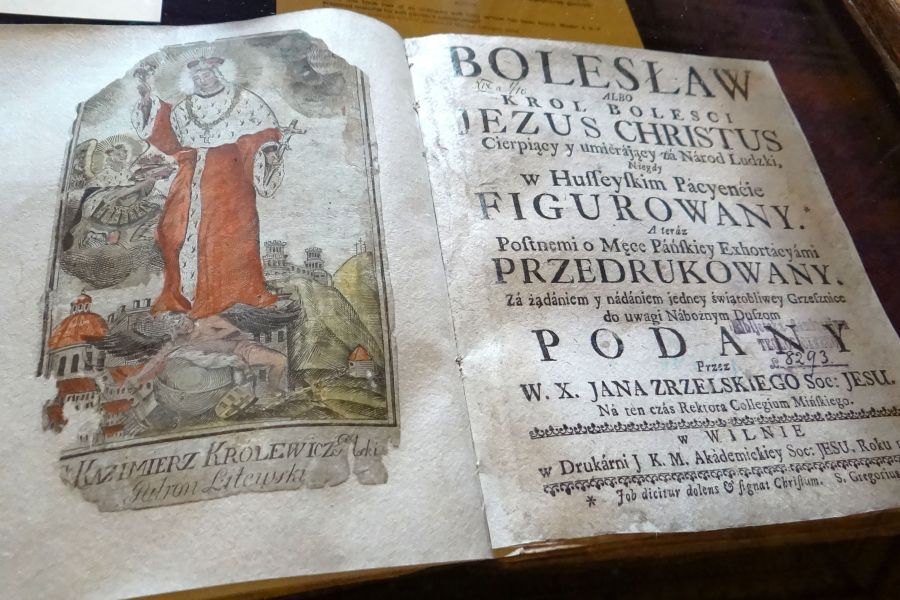 KAZIMIERZ KROLEWICZ
Patron Litewski
BOLESŁAW
ALBO
KROL BOLESCI
JEZUS CHRISTUS
Cierpiący y umiéráiący zá Národ Ludzki,
Niegdy
w Husseyskim Pácyenćie
FIGUROWANY.*
A teráz
Postnemi o Męce Páńskiey Exhortácyámi
PRZEDRUKOWANY.
Zá żądániem y nádániem jedney świątobliwey Grzesznice
do uwagi Nábożnym Duszom
PODANY
8293.
Przez
W. X. JANA ZRZELSKIEGO Soc: JESU.
Ná ten czás Rektora Collegium Mińskiego.
w WILNIE
w Drukárni J K. M. Akádemickiey Soc: JESU. Roku
* Job dicitur dolens & signat Christum. S. Gregorius